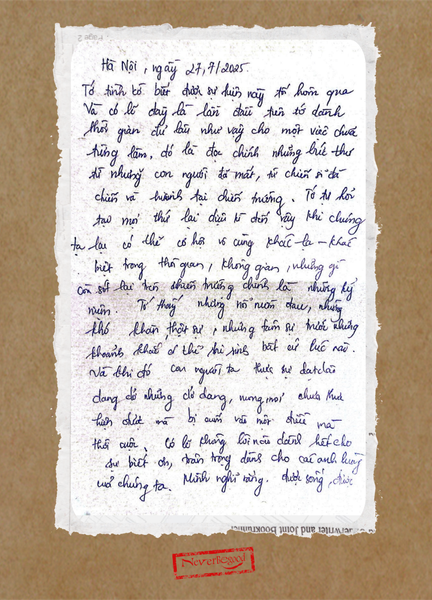 Hà Nội, ngày 27, 7/2025.
Tớ tình cờ biết được sự kiện này từ hôm qua
Và có lẽ đây là lần đầu tiên tớ dành
thời gian đủ lâu như vậy cho một việc chưa
từng làm, đó là đọc chính những bức thư
từ những con người đã mất, từ chiến sĩ đã
chiến và tại chiến trường. Tớ tự hỏi
tạo mọi thứ lại diệu kì đến vậy khi chúng
ta lại có thể có hội vô cùng khác lạ - khác
biệt trong thời gian, không gian, những gì
còn sót lại trên chiến trường chính là những kỷ
niệm. Tớ thấy những nỗi niềm đau, những
khó khăn thật sự, những tâm sự trước những
khoảnh khắc có thể hi sinh bất cứ lúc nào.
Và khi đó con người ta thực sự
dang dở những dở dang, mong mỏi chưa thực
hiện được mà bị cuốn vào một điều mà
thôi cuộc. Có lẽ không lời nào dành hết cho
sự biết ơn, trân trọng dành cho các anh hùng
của chúng ta. Mình nghĩ rằng. được sống, được
Page 2
erwriter and Joint bookrunner
Neverliegood